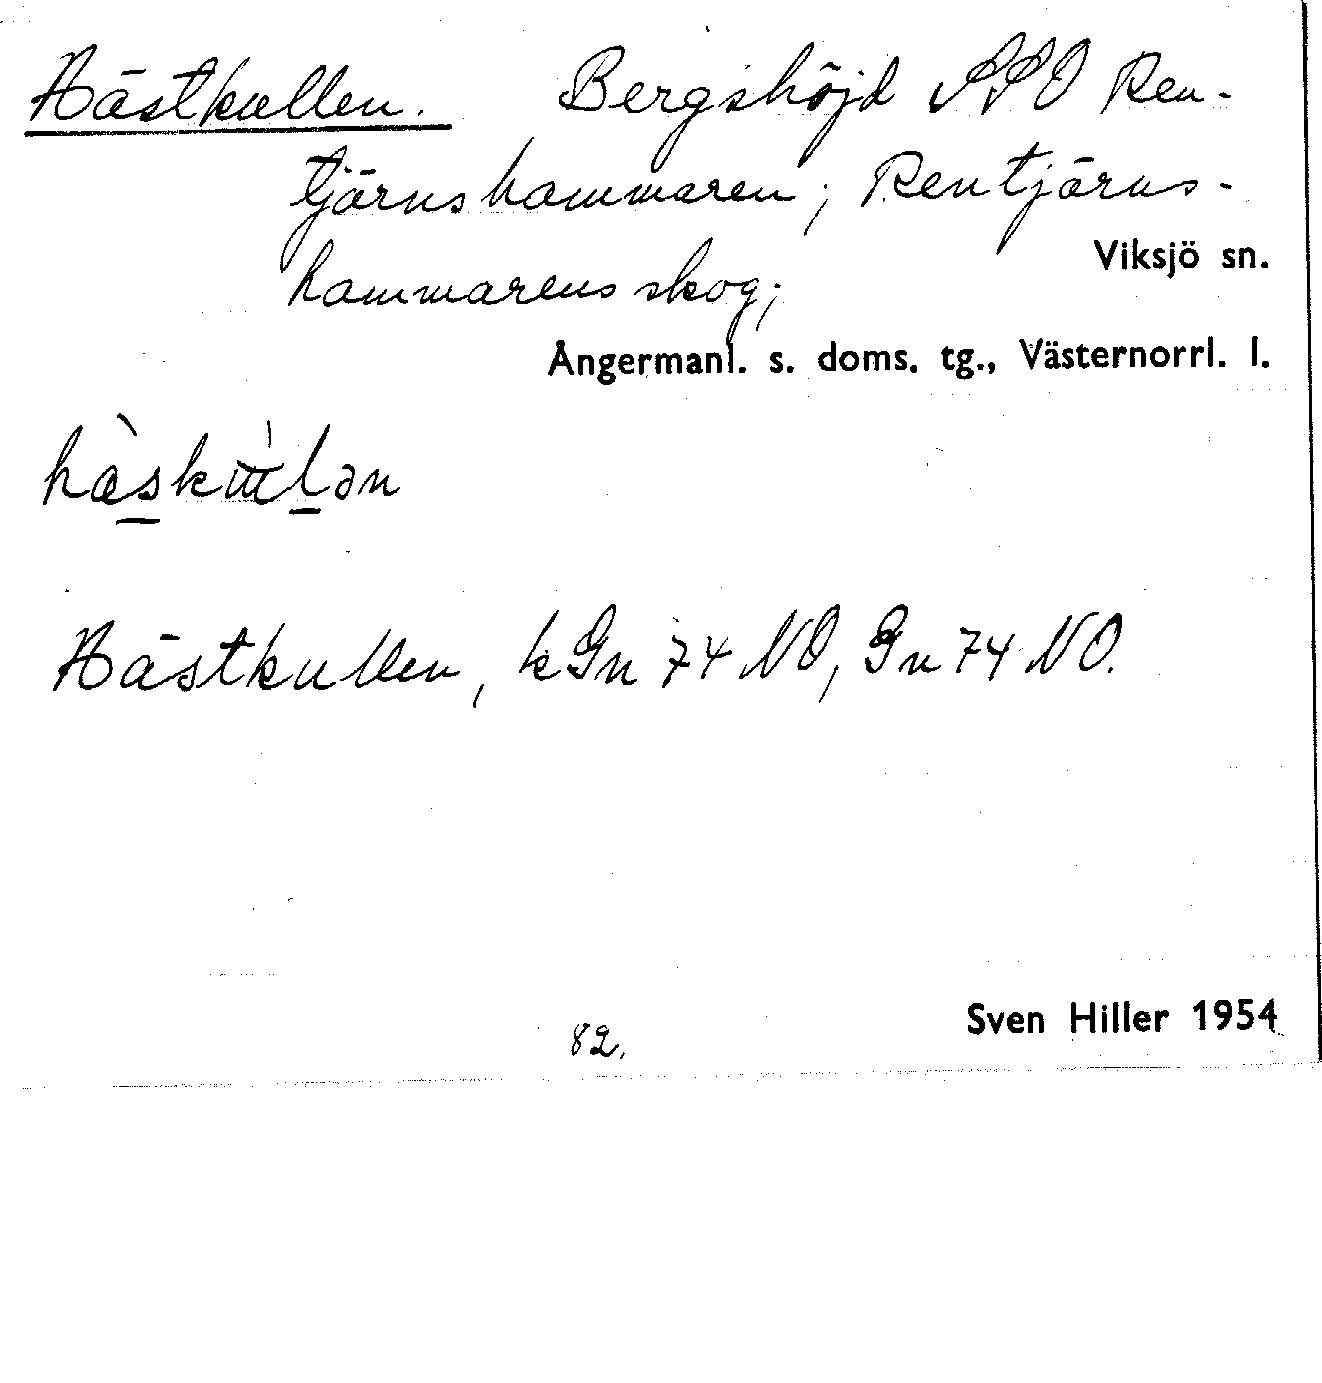 Hästkullen. Bergshöjd SSO Ren-
tjärnshammaren; Rentjärns-
hammarens skog;
Viksjö sn.
Ångermanl. s. doms. tg., Västernorrl. l.
Hästkullen, kGn 74 NO, Gn 74 NO.
82.
Sven Hiller 1954